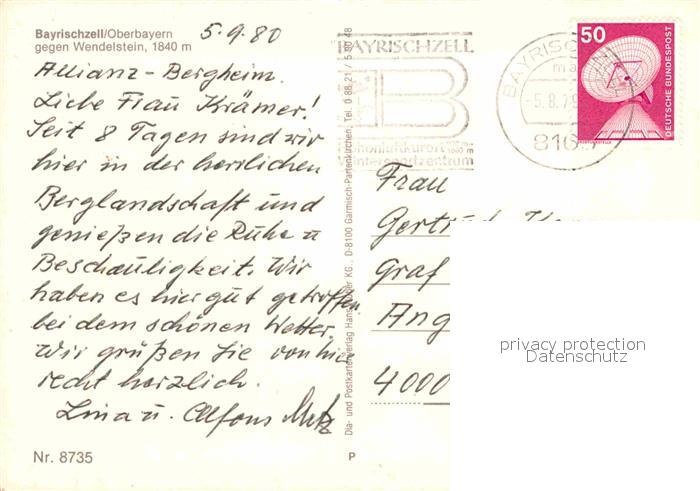 Bayrischzell/Oberbayern
gegen Wendelstein, 1840 m
5.9.80
Allianz-Bergheim.
Liebe Frau Krämer!
Seit 8 Tagen sind wir
hier in der herrlichen
Berglandschaft und
genießen die Ruhe u
Beschauligkeit. Wir
haben es hier gut getroffen
bei dem schönen Wetter,
Wir grüßen Sie von hier
recht herzlich.
Lina u. Alfons Metz
Nr. 8735
Dia- und Postkartenverlag Hans KG., D-8100 Garmisch-Partenkirchen, Tel. 0 88 21 /
P
BAYRISCHZELL
B
Höhenluftkurort
Wintersportzentrum
BAYRISCHZELL
-5.8.79
816
50
DEUTSCHE BUNDESPOST
Frau
Gertrud
Graf
Ang
4000
privacy protection
Datenschutz